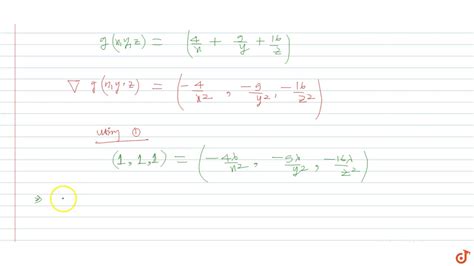 g(x,y,z) = (4/x + 9/y + 16/z)
∇ g(x,y,z) = (-4/x2 , -9/y2 , -16/z2)
using ①
(1,1,1) = (-4λ/x2 , -9λ/y2 , -16λ/z2)
⇒